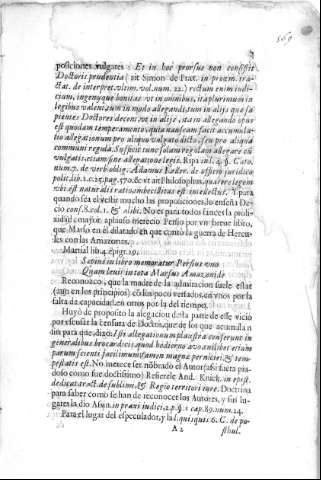 3
posiciones vulgares : Et in hoc prorsus non consistit
Doctoris prudentia ( ait Simon de Præt. in proœm. tra-
ctat. de interpret. vltim. vol. num. 22. ) rectum enim iudi-
cium, ingenijque bonitas vt in omnibus, ita plurimum in
legibus valent, tum in modo allegandi, tum in alijs quæ sa-
pientes Doctores decent, vt in alijs, ita in allegando opus
est quodam temperamento, quia nauseam facit accumula-
tio allegationum pro aliquo vulgato dicto, seu pro aliqua
communi regula. Sufficit tunc solam regulam allegare vel
vulgatis, etiam sine allegatione legis. Ripa in l. 4. §. Cato.
num. 7. de verb. oblig. Adamus
polit. lib. 1. c. 25. pag. 570. & vt ait Philosophus, quærere legem
vbi est naturalis ratio, imbecillitas est intellectus. Y para
quando sea el exibir mucho las proposiciones, lo enseña De-
cio cons. 8. vol. 1. & alibi. No es para todos (ance la prolixi-
midad el mayor) aplauso merecio Persio por vn breue libro,
que Marso en el dilatado en que cantò la guerra de Hercu-
les con las Amazonas.
Martial lib. 4. epigr.
Sæpius in libro memoratur Persius vno
Quam leuis in tota Marsus Amazonide
Reconozco, que la madre de la admiracion suele estar
(aun en los principios) cõ los poco versados, en vnos por la
falta de capacidad, en otros por la del tiempo.
Huyò de proposito la alegacion desta parte de este vicio
por escusar la censura de que de los que acumulan
sin para que, dixo. Isti allegationum plaustra conferunt in
generalibus brocardicis, quod hodierno æuo
parum scientes faciunt, tamen magna pernicies, & tem-
pestatis est. No merece ser nõbrado el Autor (assi fuera pia-
doso como fue doctissimo) Refierele And. Knick. in epist.
dedicat. tract. de sublim. & Regio territori iure. Doctrina
para saber como se han de reconocer los Autores, y sus lu-
gares la dio Asin. in praxi iudici. 2. p. §. 1 cap. 89. num. 14.
Para el lugar del especulador, y la l. quisquis 6. C. de po-
A 2
stul.